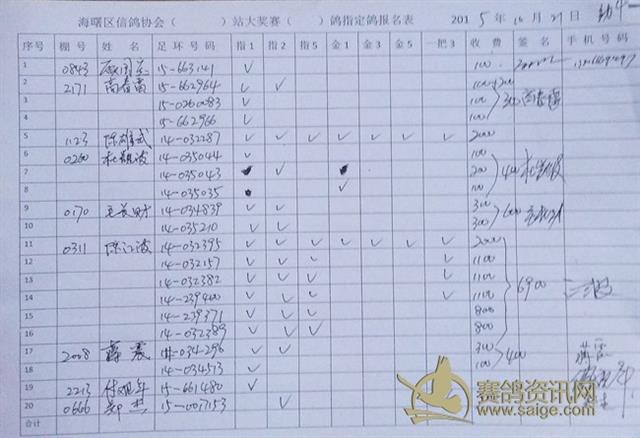 海曙区信鸽协会（ ）站大奖赛（ ）鸽指定鸽报名表 2015年10月21日
序号 棚号 姓名 足环号码 指1 指2 指5 金1 金3 金5 一把3 收费 签名 手机号码
1 0843 15-663141 √ 100
2 2171 15-662964 √ √
3 15-0260083 √ 100
4 15-662966 √ 100
5 1123 陈雄武 14-032287 √ √ √ √ √ √ √ 2000
6 0260 14-035044 √ 100
7 14-035043 √ 200 400
8 14-035035 √ 100
9 0170 14-034839 √ √ 300 600
10 14-035210 √ √ 300
11 0311 陈江波 14-032395 √ √ √ √ √ √ √ 2000
12 14-032157 √ √ √ √ 1100
13 14-032382 √ √ √ √ 1100
14 14-239400 √ √ √ √ 1100 6900
15 14-239371 √ √ √ 800
16 14-032389 √ √ √ 800
17 2008 14-034296 √ √ 300 400
18 14-034513 √ 100
19 2213 15-661480 √
20 0666 郑杰 15-0017153 √
合计
赛鸽资讯网
www.saige.com